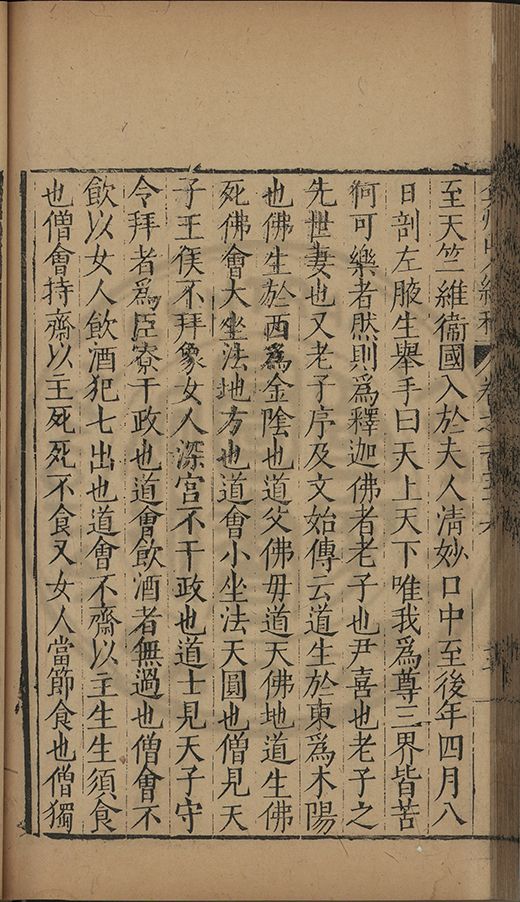 至天竺維衞國入於夫人清妙口中至後年四月八
日剖左腋生舉手曰天上天下唯我爲尊三界皆苦
何可樂者然則爲釋迦佛者老子也尹喜也老子之
先世妻也又老子序及文始傳云道生於東爲木陽
也佛生於西爲金陰也道父佛母道天佛地道生佛
死佛會大坐法地方也道會小坐法天圓也僧見天
子王侯不拜象女人深宮不干政也道士見天子守
令拜者爲臣寮干政也道會飲酒者無過也僧會不
飲以女人飲酒犯七出也道會不齋以主生生須食
也僧會持齋以主死死不食又女人當節食也僧獨